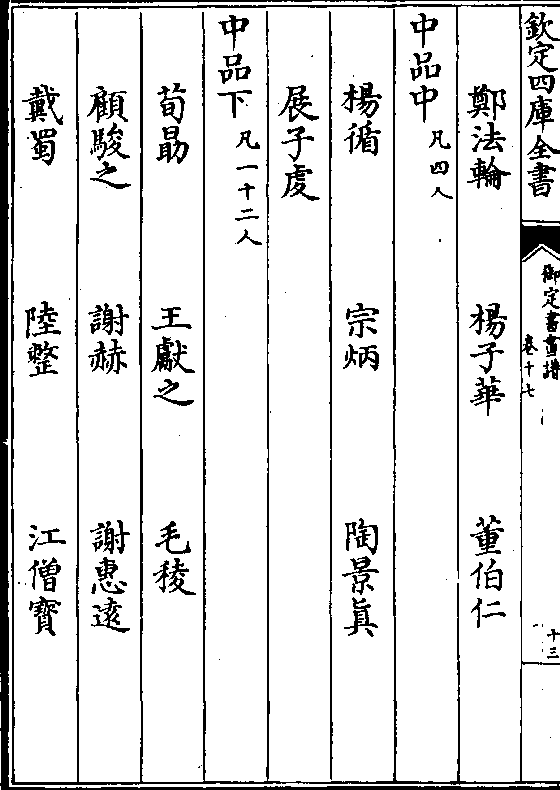 欽定四庫全書
御定書畫譜
卷十七
十三
鄭法輪 楊子華 董伯仁
中品中 凡四人
楊循 宗炳 陶景真
展子虔
中品下 凡一十二人
荀勗 王獻之 毛稜
顧駿之 謝赫 謝惠遠
戴蜀 陸整 江僧寳